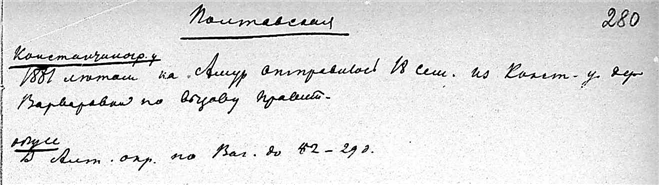 Полтавская
280
Константиногр. у
1881 летом на Амур отправилось 18 сем. из Конст. у. дер
Варваровки по вызову правит.
В Алт. окр. по Ваг. до 82 – 29 д.